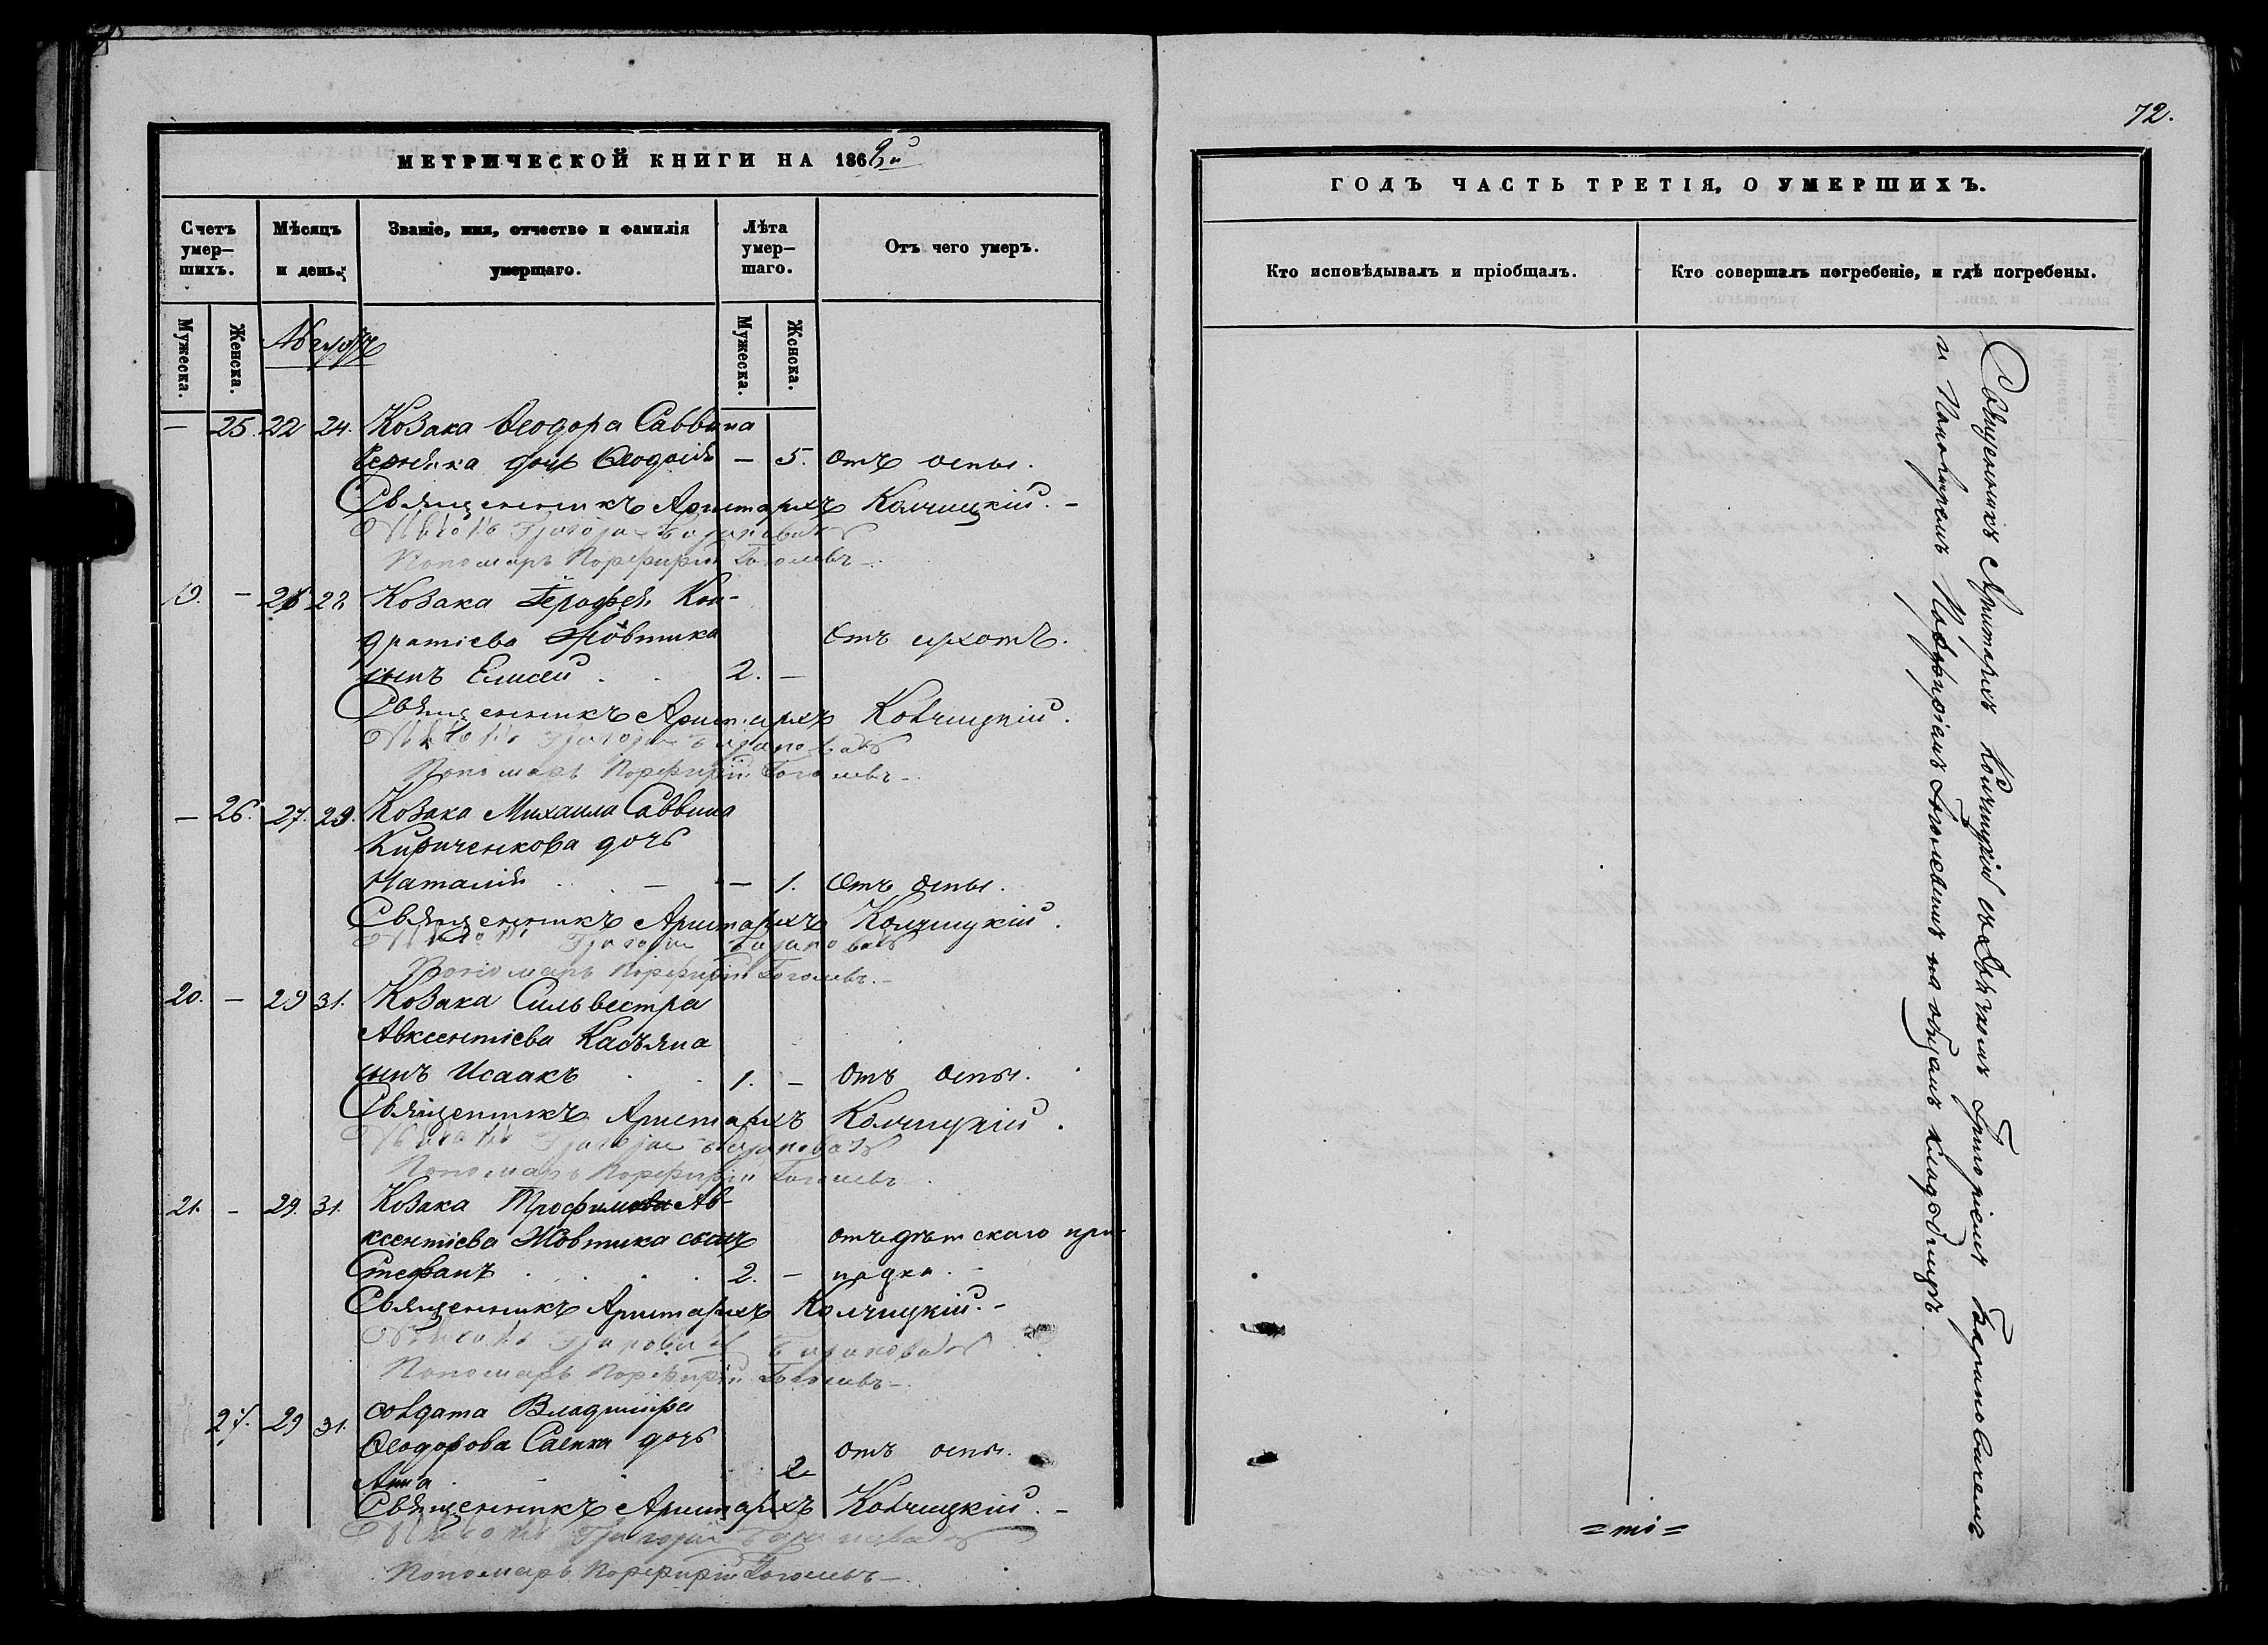 72.
МЕТРИЧЕСКОЙ КНИГИ НА 1862й
Счетъ умер-шихъ.
Мѣсяцъ и день.
Званіе, имя, отчество и фамилія умершаго.
Лѣта умер-шаго.
Отъ чего умеръ.
Мужеска.
Женска.
Мужеска.
Женска.
Августъ
— 25. 22 24. Козака Ѳеодора Саввина
дочь Ѳеодосія — 5. Отъ оспы.
Священникъ Аристархъ Колчицкій.
Дьячокъ Григорій Барановичъ
Пономарь Порфирій Гоголевъ
19. — 26 28 Козака Ерофея Кон-
дратіева Жовтика Отъ сухотъ.
сынъ Елисей 2. —
Священникъ Аристархъ Колчицкій.
Дьячокъ Григорій Барановичъ
Пономарь Порфирій Гоголевъ
— 26. 27. 29. Козака Михаила Саввина
Кириченкова дочь
Наталія — 1. Отъ оспы.
Священникъ Аристархъ Колчицкій.
Дьячокъ Григорій Барановичъ
Пономарь Порфирій Гоголевъ.
20. — 29 31. Козака Сильвестра
Авксентіева Касьяна
сынъ Исаакъ 1. — Отъ оспы.
Священникъ Аристархъ Колчицкій.
Дьячокъ Григорій Барановичъ
Пономарь Порфирій Гоголевъ
21. — 29. 31. Козака Трофима Ав-
ксентіева Жовтика сынъ отъ дѣтскаго при-
Стефанъ 2. — падка.
Священникъ Аристархъ Колчицкій.
Дьячокъ Григорій Барановичъ
Пономарь Порфирій Гоголевъ
27. 29 31. Солдата Владиміра
Ѳеодорова Саенка дочь отъ оспы.
Анна 2
Священникъ Аристархъ Колчицкій.
Дьячокъ Григорій Барановичъ
Пономарь Порфирій Гоголевъ
ГОДЪ ЧАСТЬ ТРЕТІЯ, О УМЕРШИХЪ.
Кто исповѣдывалъ и пріобщалъ.
Кто совершалъ погребеніе, и гдѣ погребены.
Священникъ Аристархъ Колчицкій съ Дьячкомъ Григоріемъ Барановичемъ
и Пономремъ Порфиріемъ Гоголевымъ на общемъ кладбищѣ.